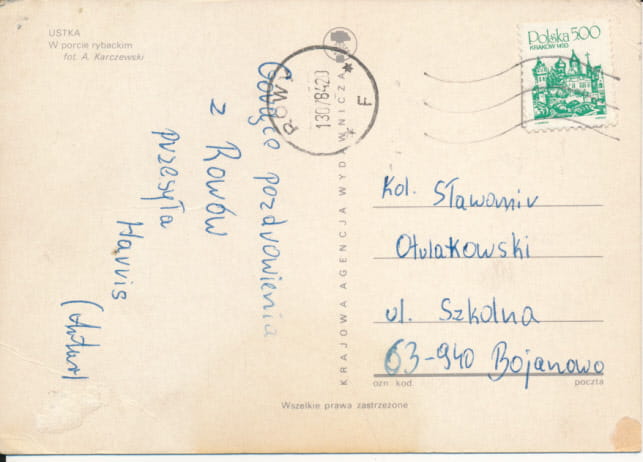 USTKA
W porcie rybackim
fot. A. Karczewski
Gorące pozdrowienia
z Rowów
przesyła
Harris
(Artur)
KRAJOWA AGENCJA WYDAWNICZA
ROWY
13078420
F
Polska 500
KRAKÓW 1493
Kol. Sławomir
Otulakowski
ul. Szkolna
63-940 Bojanowo
ozn kod.
poczta
Wszelkie prawa zastrzeżone